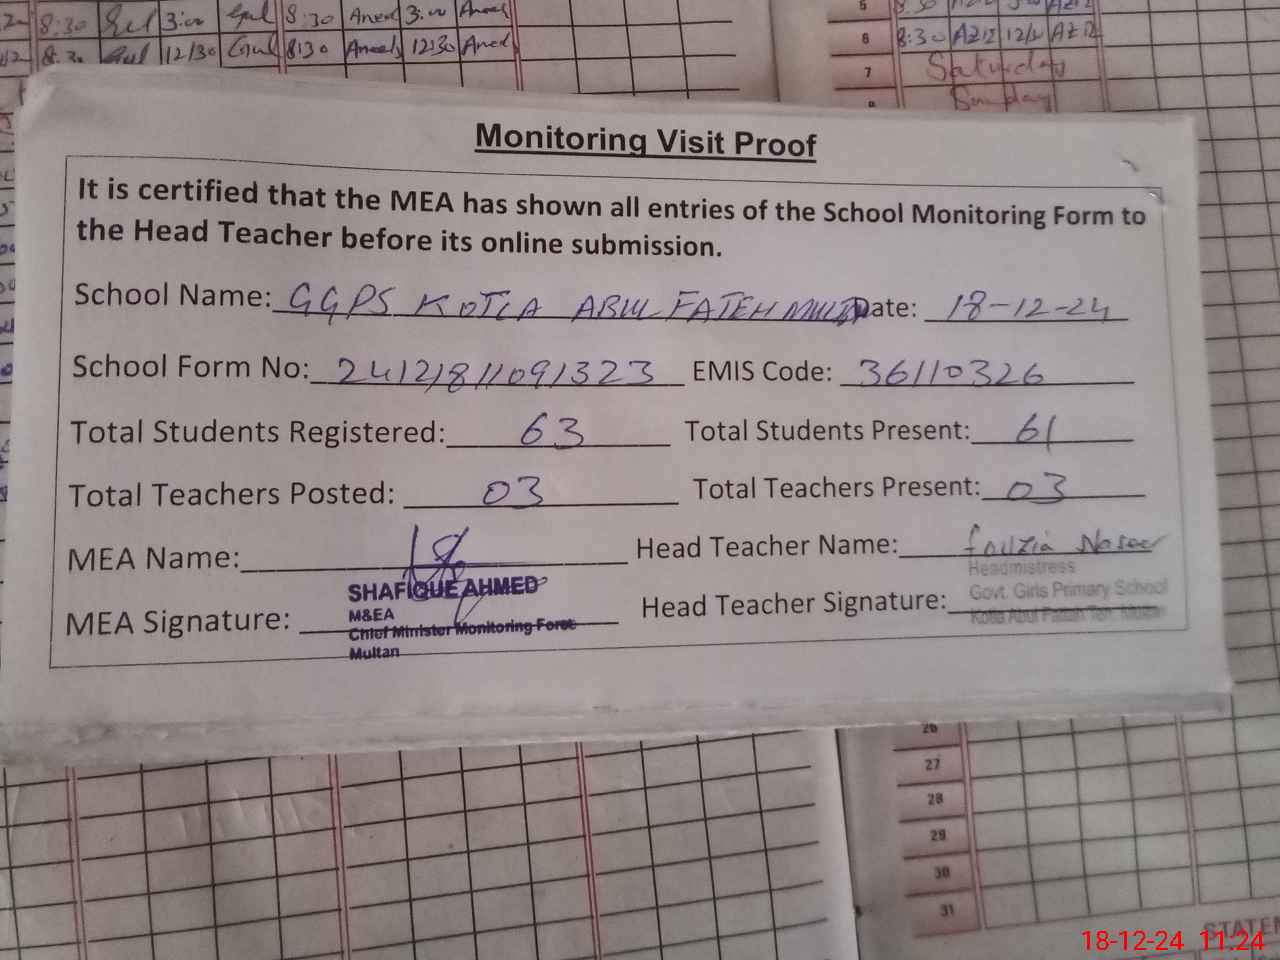 8:30 3:00 Gul 8:30 Aneel 3:00 Aneel
8:30 Gul 12/30 Gul 8:30 Aneel 12:30 Aneel
5
6 8:30 AZIZ 12/30 AZIZ
7 Saturday
8 Sunday
Monitoring Visit Proof
It is certified that the MEA has shown all entries of the School Monitoring Form to
the Head Teacher before its online submission.
School Name: GGPS KOTLA ABUL FATEH MULTAN Date: 18-12-24
School Form No: 24121811091323 EMIS Code: 36110326
Total Students Registered: 63 Total Students Present: 61
Total Teachers Posted: 03 Total Teachers Present: 03
MEA Name: Head Teacher Name: Fouzia
Headmistress
SHAFIQUE AHMED Govt. Girls Primary School
M&EA
MEA Signature: Head Teacher Signature: Kotla Abul Fateh Teh. Multan
Chief Minister Monitoring Force
Multan
26
27
28
29
30
31
18-12-24 11:24